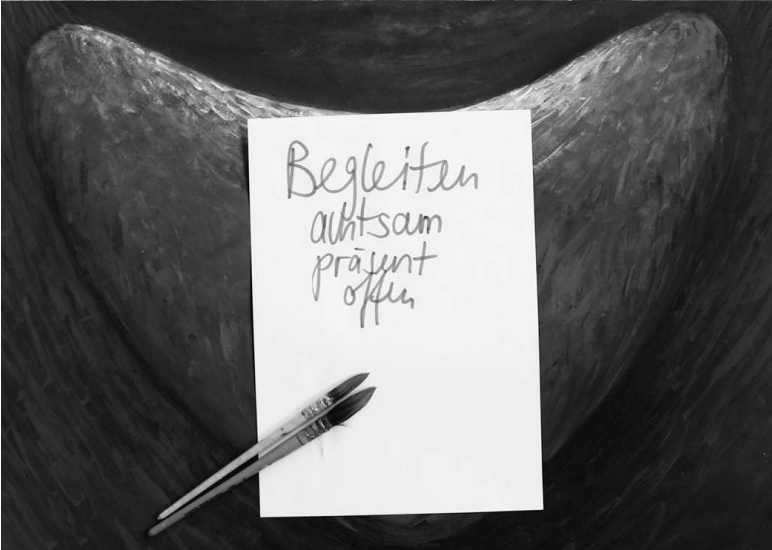 Begleiten
achtsam
präsent
offen